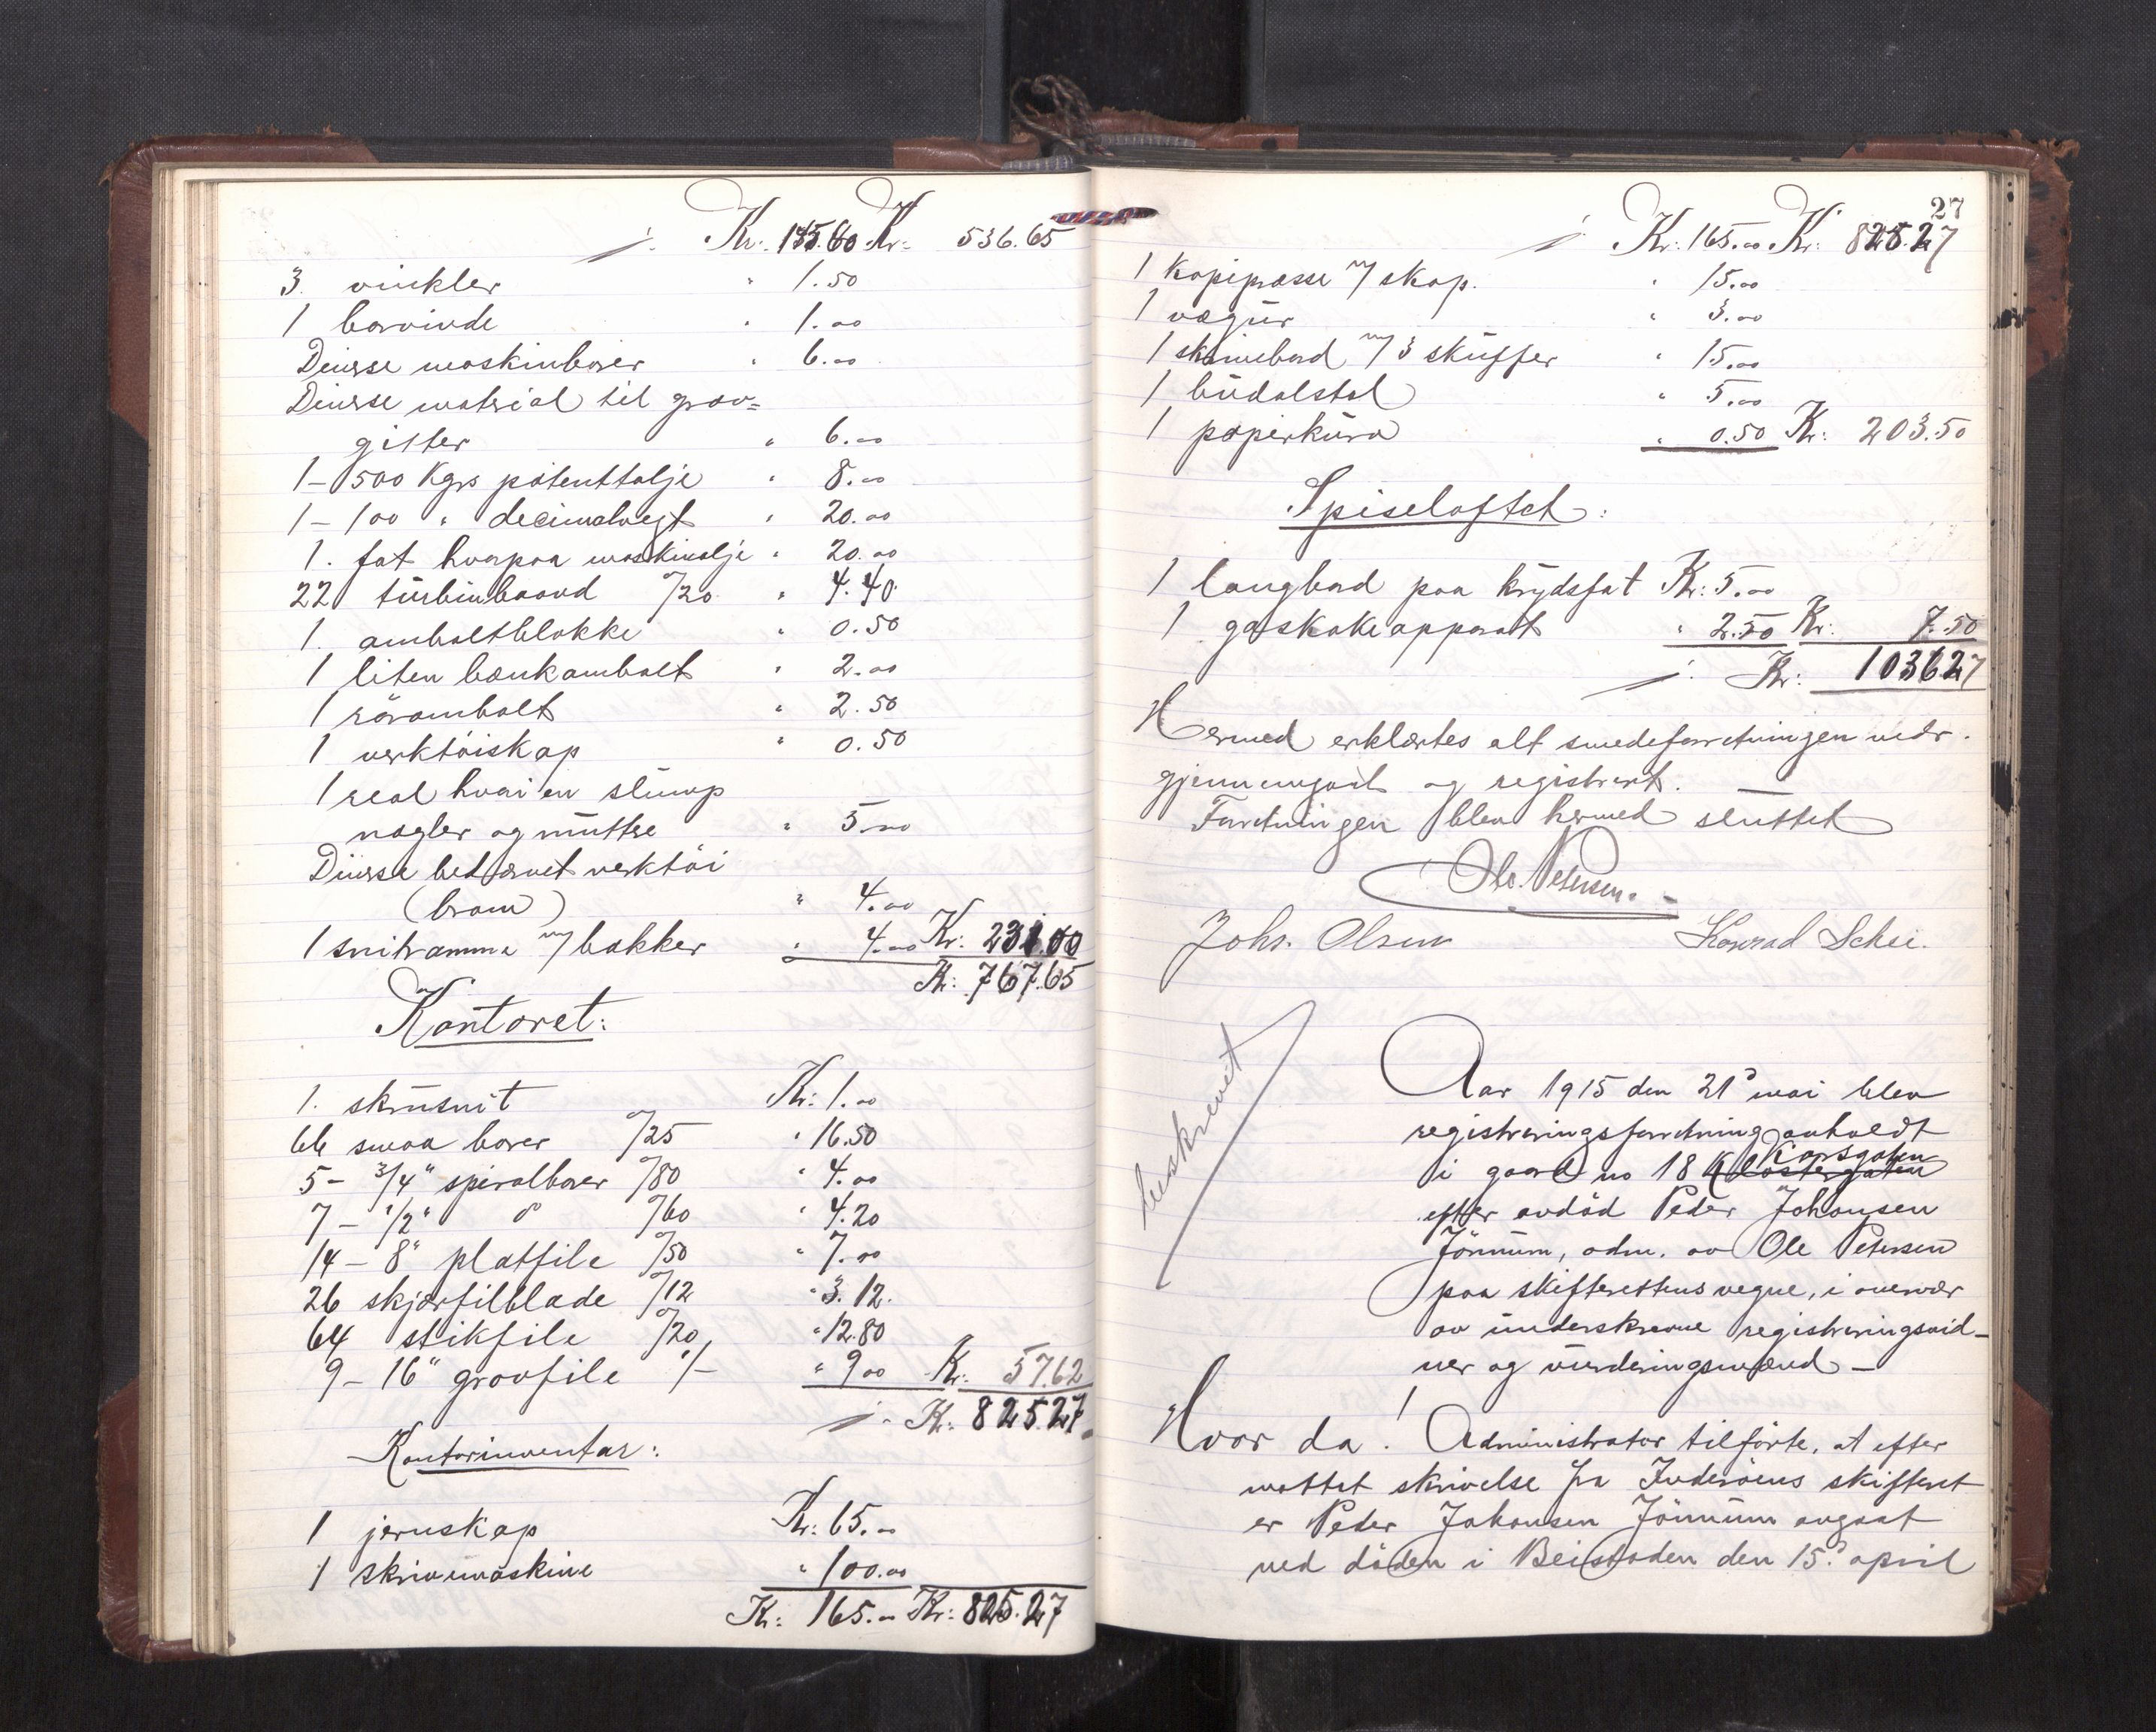 ./. Kr. 155.60 Kr. 536.65
3. vinkler " 1.50
1 borvinde " 1.00
Diverse maskinborer " 6.00
Diverse material til grav=
gitter " 6.00
1 - 500 Kgrs patenttalje " 8.00
1 - 100 " decimalvegt " 20.00
1. fat hvorpaa maskinolje " 20.00
22 türbinbaand a/20 " 4.40
1. amboltblokke " 0.50
1 liten bænkambolt " 2.00
1 rörambolt " 2.50
1 verktöiskap " 0.50
1 reol hvori en slump
nagler og müttre " 5.00
Diverse bedærvet verktöi
(brann) " 4.00
1 snitramme m/ bakker " 4.00 Kr. 231.00
Kr. 767.65
Kontoret:
1. skrüsnit Kr. 1.00
66 smaa borer a/25 " 16.50
5 - 3/4" spiralborer a/80 " 4.00
7 - 1/2" d° a/60 " 4.20
14 - 8" platfile a/50 " 7.00
26 skjærfilblade a/12 " 3.12.
64 stikfile a/20 " 12.80
9 - 16" grovfile 1/- " 9.00 Kr. 57.62
./. Kr. 825.27
Kontorinventar:
1 jernskap Kr. 65.00
1 skrivemaskine " 100.00
Kr. 165.00 Kr. 825.27
27
./. Kr. 165.00 Kr. 825.27
1 Kopipresse m/ skap. " 15.00
1 vægür " 3.00
1 skrivebord m/ 3 sküffer " 15.00
1 büdalstol " 5.00
1 papirkürv " 0.50 Kr. 203.50
Spiseloftet:
1 langbord paa krydsfat Kr. 5.00
1 gaskokeapparat " 2.50 Kr. 7.50
./. Kr. 1036.27
Hermed erklærtes alt smedeforretningen vedr.
gjennemgaat og registrert.
Forretningen blev hermed sluttet
Ole Petersen.
Johs. Olsen Konrad Schei.
beskrevet
Aar 1915 den 21d mai blev
registreringsforretning avholdt
Korsgaten
i gaard no 18 Klostergaten
efter avdöd Peder Johansen
Jönnüm, adm. av Ole Petersen
paa skifterettens vegne, i overvær
av ünderskrevne registreringsvid-
ner og vürderingsmænd -
Hvor da! Administrator tilförte, at efter
mottat skrivelse fra Inderöens skifteret
er Peder Johansen Jönnüm avgaat
ved döden i Beistaden den 15d april